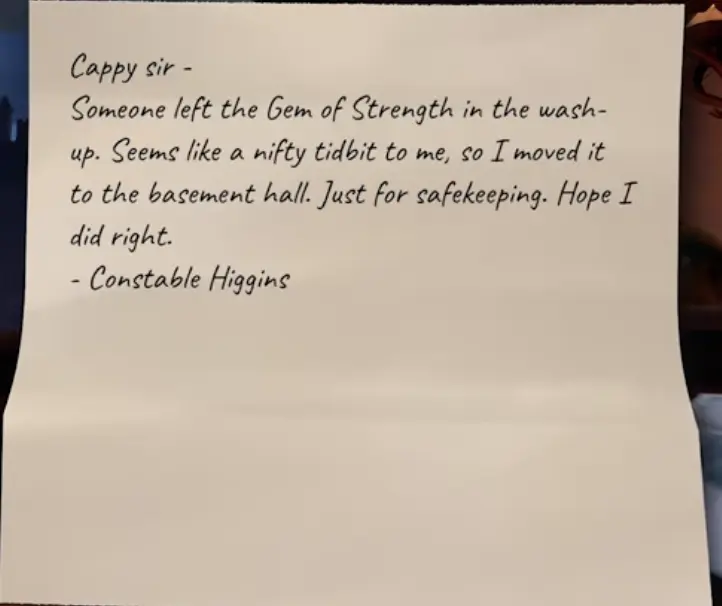 Cappy sir -
Someone left the Gem of Strength in the wash-
up. Seems like a nifty tidbit to me, so I moved it
to the basement hall. Just for safekeeping. Hope I
did right.
- Constable Higgins